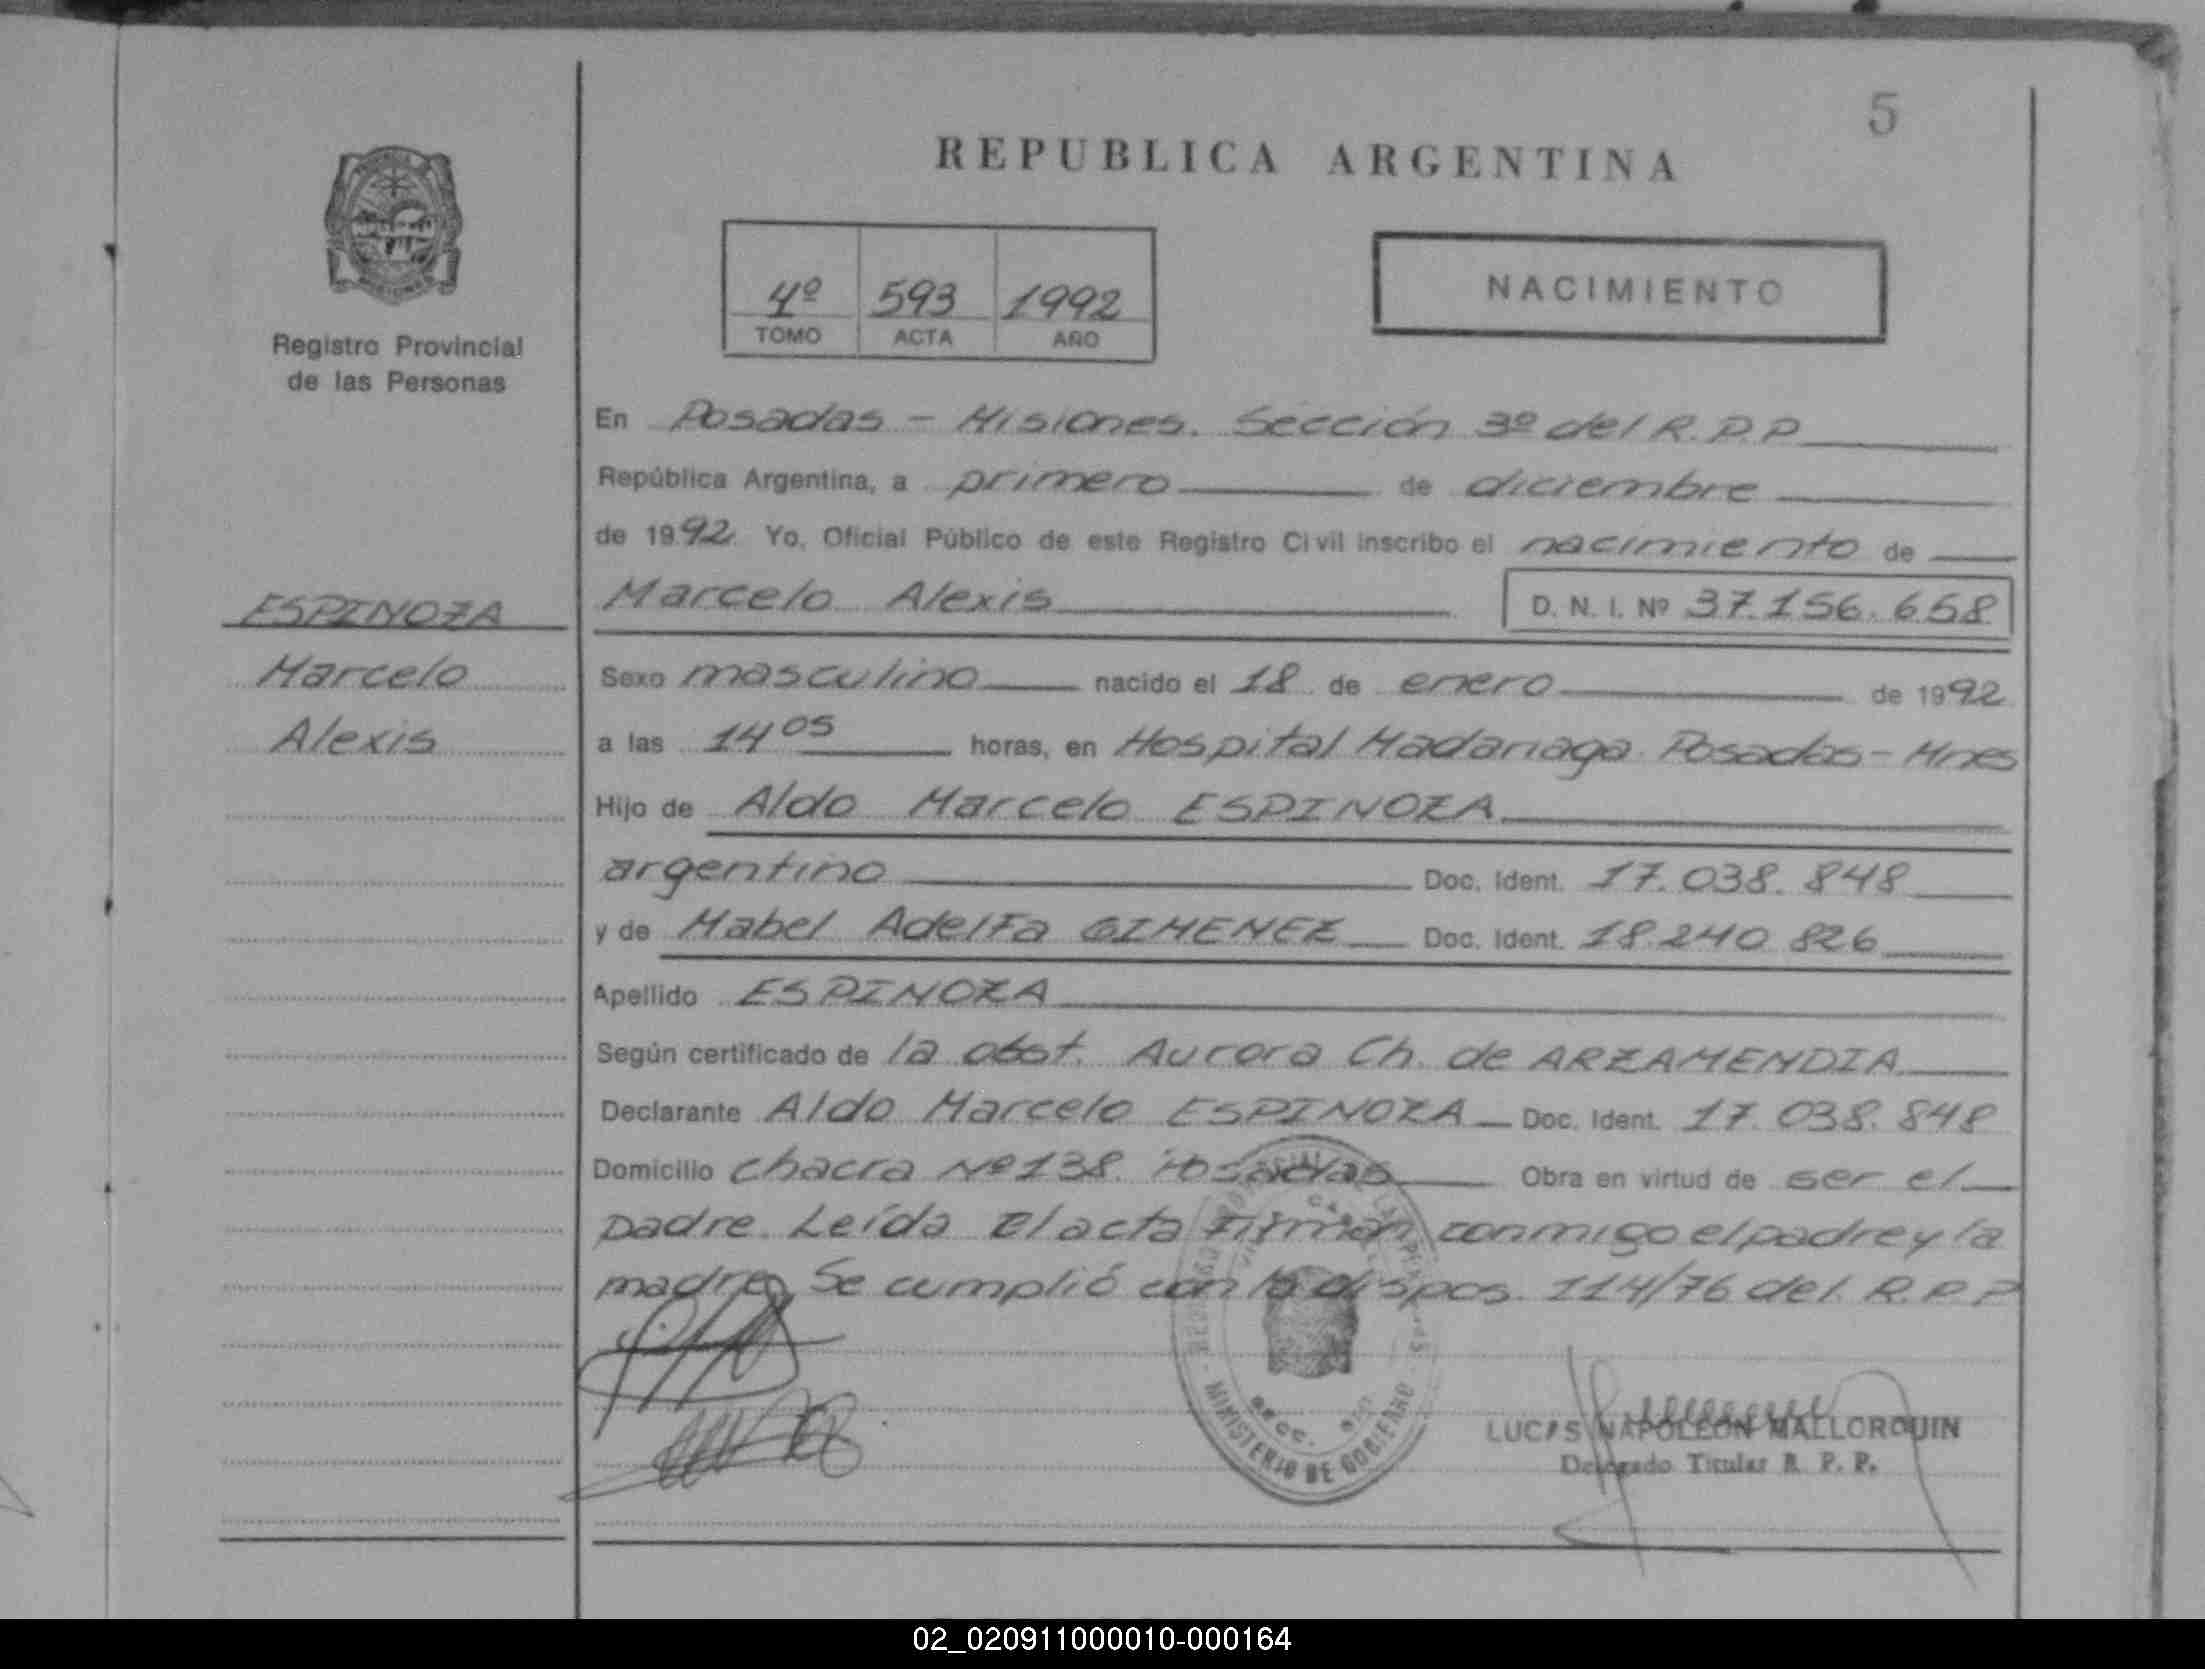 5
REPUBLICA ARGENTINA
4º 593 1992
TOMO ACTA AÑO
NACIMIENTO
Registro Provincial
de las Personas
En Posadas - Misiones. Sección 3º del R.P.P
República Argentina, a primero de diciembre
de 1992. Yo, Oficial Público de este Registro Civil inscribo el nacimiento de
ESPINOZA
Marcelo Alexis D. N. I. Nº 37.156.658
Marcelo
Sexo masculino nacido el 18 de enero de 1992
Alexis
a las 14 05 horas, en Hospital Madariaga. Posadas - Mnes
Hijo de Aldo Marcelo ESPINOZA
argentino Doc. Ident. 17.038.848
y de Mabel Adelfa GIMENEZ Doc. Ident. 18.240.826
Apellido ESPINOZA
Según certificado de la obst. Aurora Ch. de ARZAMENDIA
Declarante Aldo Marcelo ESPINOZA Doc. Ident. 17.038.848
Domicilio chacra Nº 138. Posadas Obra en virtud de ser el
padre. Leída el acta firman conmigo el padre y la
madre. Se cumplió con la dispos. 114/76 del R.P.P
MINISTERIO DE GOBIERNO
SECC.
LUCAS NAPOLEON MALLORQUIN
Delegado Titular R. P. P.
02_020911000010-000164